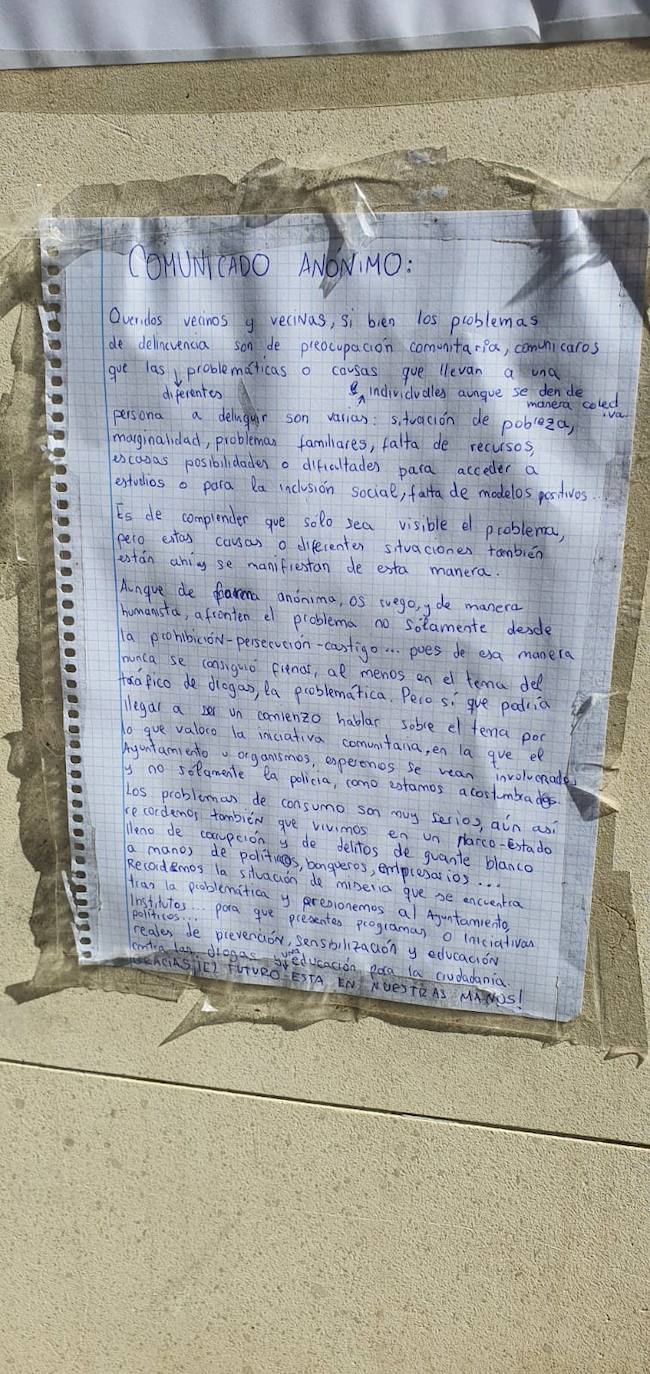 COMUNICADO ANÓNIMO:
Queridos vecinos y vecinas, si bien los problemas
de delincuencia son de preocupación comunitaria, comunicaros
que las problemáticas o causas que llevan a una
diferentes
individuales aunque se den de
manera colectiva
persona a delinquir son varias: situación de pobreza,
marginalidad, problemas familiares, falta de recursos,
escasas posibilidades o dificultades para acceder a
estudios o para la inclusión social, falta de modelos positivos...
Es de comprender que sólo sea visible el problema,
pero estas causas o diferentes situaciones también
están ahí y se manifiestan de esta manera.
Aunque de forma anónima, os ruego, y de manera
humanista, afronten el problema no sólamente desde
la prohibición-persecución-castigo... pues de esa manera
nunca se consiguió frenar, al menos en el tema del
tráfico de drogas, la problemática. Pero sí que podría
llegar a ser un comienzo hablar sobre el tema por
lo que valoro la iniciativa comunitaria, en la que el
Ayuntamiento u organismos, esperemos se vean involucrados
y no sólamente la policía, como estamos acostumbrados.
Los problemas de consumo son muy serios, aún así
recordemos también que vivimos en un Narco-Estado
lleno de corrupción y de delitos de guante blanco
a manos de políticos, banqueros, empresarios...
Recordemos la situación de miseria que se encuentra
tras la problemática y presionemos al Ayuntamiento,
Institutos... para que presentes programas o iniciativas
políticos...
reales de prevención, sensibilización y educación
contra las drogas y una educación para la ciudadanía.
GRACIAS ¡El FUTURO ESTA EN NUESTRAS MANOS!